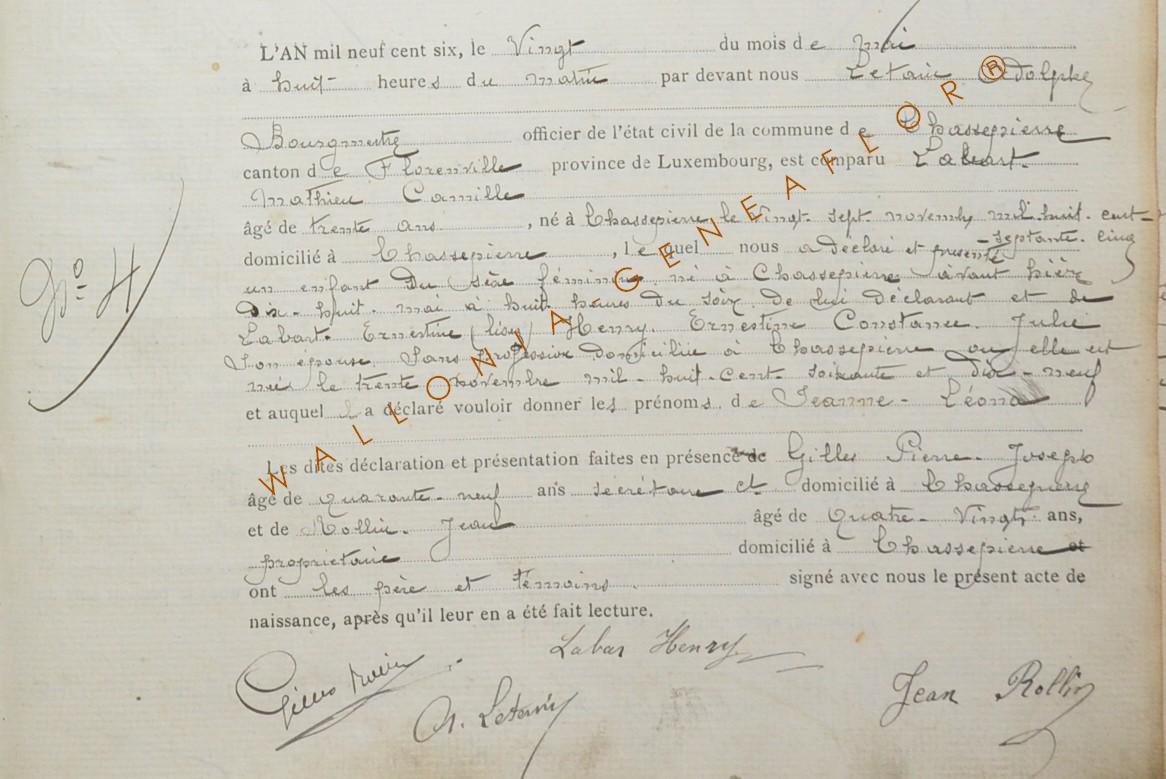 L'AN mil neuf cent six, le Vingt du mois de mai
à huit heures du matin par devant nous Letaur Adolphe
Bourgmestre officier de l'état civil de la commune de Chassepierre
canton de Florenville province de Luxembourg, est comparu Labart.
Mathieu Camille
âgé de trente ans , né à Chassepierre le vingt sept novembre mil. huit. cent
- septante. cinq
domicilié à Chassepierre , lequel nous a déclaré et présenté
un enfant du sexe féminin né à Chassepierre avant hier
dix. huit. mai à huit heures du soir de lui déclarant et de
Labart. Ernestine (lisez) Henry. Ernestine Constance. Julie
Son épouse, Sans profession domiciliée à Chassepierre où elle est
née le trente novembre mil - huit - cent. soixante et dix - neuf
et auquel il a déclaré vouloir donner les prénoms de Jeanne - Léona
Les dites déclaration et présentation faites en présence de Gilles Pierre - Joseph
âgé de quarante - neuf ans secrétaire et domicilié à Chassepierre
et de Rollin. Jean âgé de Quatre - Vingts ans,
propriétaire domicilié à Chassepierre et
ont les père et témoins. signé avec nous le présent acte de
naissance, après qu'il leur en a été fait lecture.
Nº 4
Labar Henry
Gilles
A.
Jean Rollin
WALLONIA GENEAFLOR®